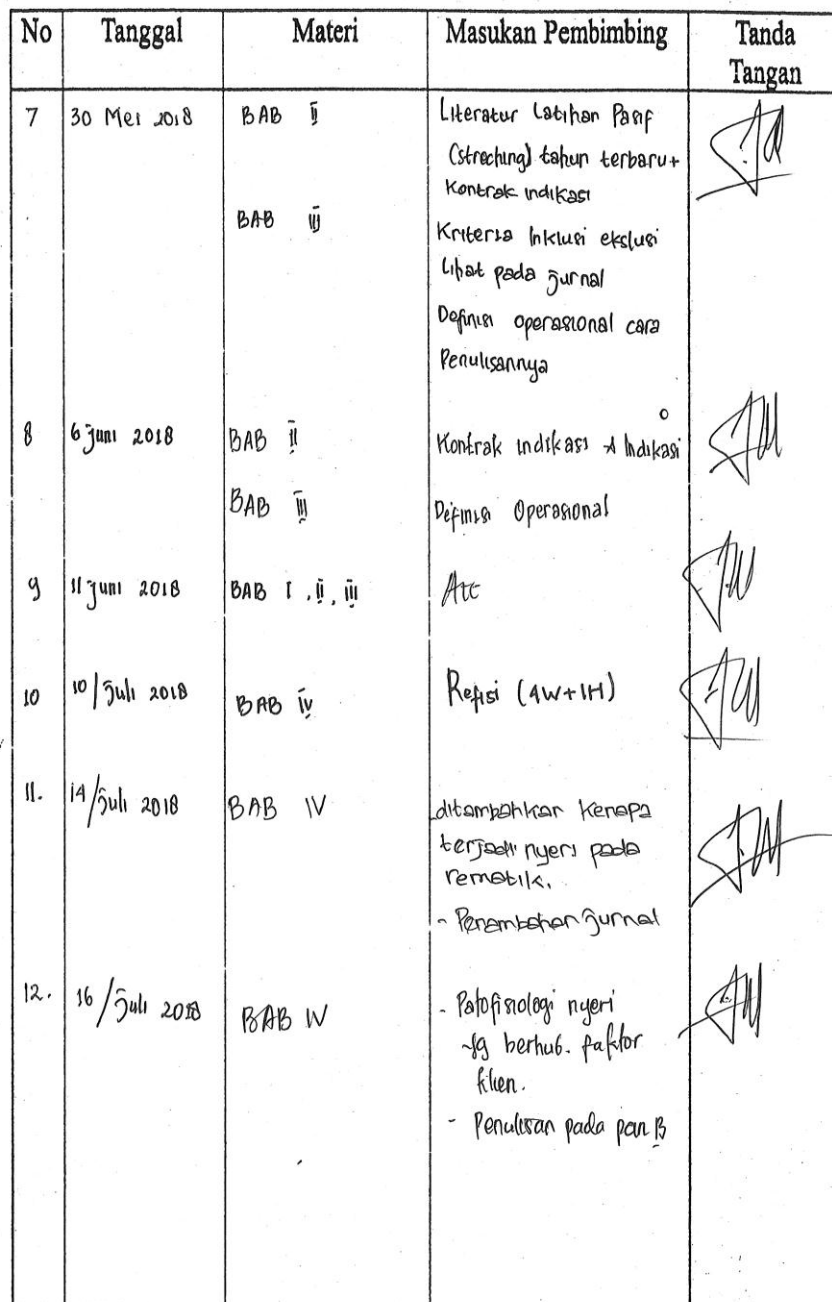 No Tanggal Materi Masukan Pembimbing Tanda Tangan
7 30 Mei 2018 BAB II Literatur Latihan Pasif
(streching) tahun terbaru +
Kontrak indikasi
BAB III Kriteria Inklusi ekslusi
Lihat pada jurnal
Definisi operasional cara
Penulisannya
8 6 Juni 2018 BAB II Kontrak indikasi & Indikasi
BAB III Definisi Operasional
9 11 Juni 2018 BAB I, II, III Acc
10 10/Juli 2018 BAB IV Refisi (4W+1H)
11. 14/Juli 2018 BAB IV ditambahkan kenapa
terjadi nyeri pada
rematik.
- Penambahan jurnal
12. 16/Juli 2018 BAB IV - Patofisiologi nyeri
yg berhub. faktor
klien.
- Penulisan pada poin B